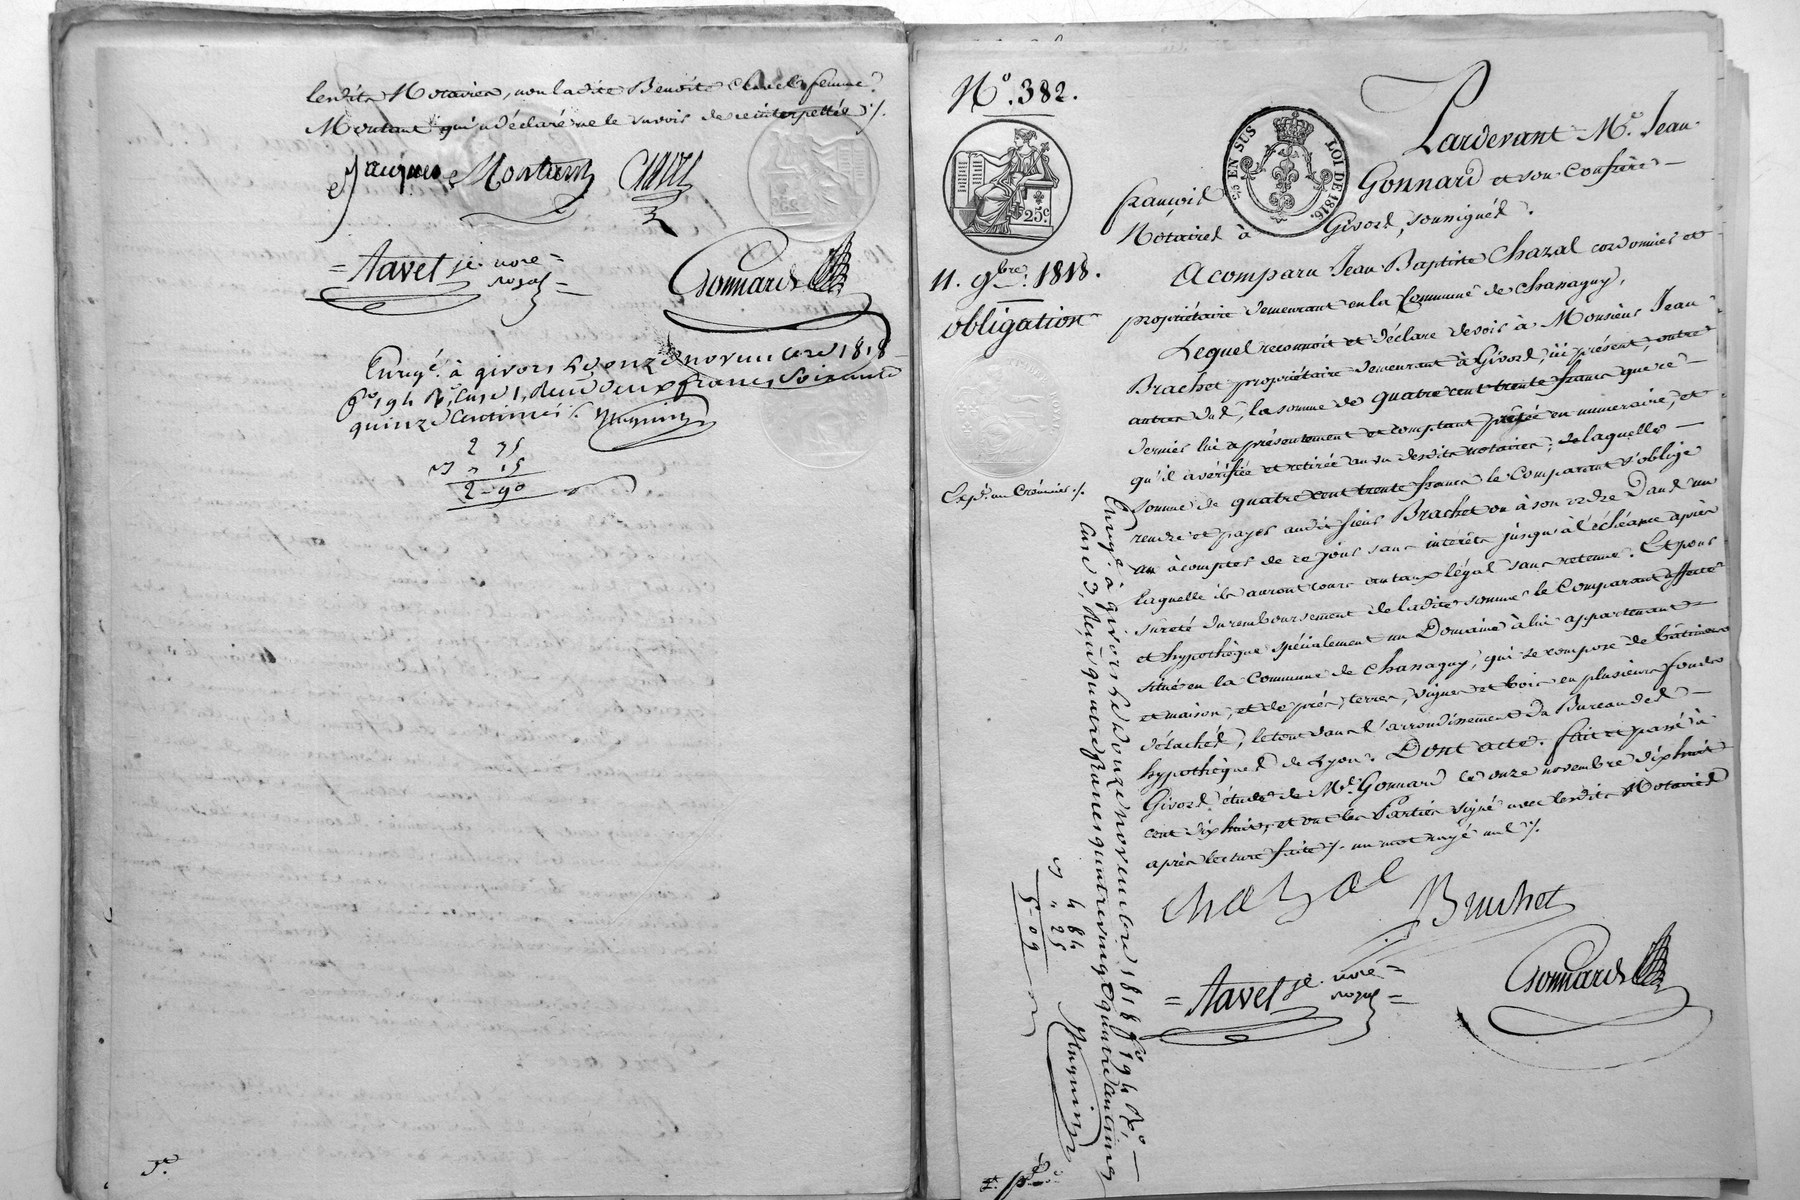 lesdits Notaires, non ladite Benoite femme
Montant qui a déclaré ne le savoir de ce interpellée ./.
Jacques Montant
= Tavel je. nore =
noyal =
Gonnard
Enregé. à givors le onze novembre 1818
fo. 194 Ro, Case 1, reçu deux francs soixante
quinze centimes
2 75
" 15
2-90
No. 382.
25 c.
5e EN SUS LOI DE 1816.
Pardevant Me. Jean
françois Gonnard et son Confrère
Notaires à Givors, soussignés.
11. 9bre. 1818.
obligation
A comparu Jean Baptiste Chazal cordonnier et
propriétaire demeurant en la Commune de Chassagny,
Lequel reconnoit et déclare devoir à Monsieur Jean
Brachet propriétaire demeurant à Givors, ici présent, entre
autres dud, la somme de quatre cent trente francs que ce
dernier lui a présentement et comptant prêtée en numéraire, et
qu'il a vérifiée et retirée au vu desdits notaires; de laquelle
somme de quatre cent trente francs le Comparant s'oblige
rendre et payer audit sieur Brachet ou à son ordre Dans un
an à compter de ce jour sans intérêts jusqu'à l'échéance après
laquelle ils auront cours au taux légal sans retenue. Et pour
sûreté du remboursement de ladite somme le Comparant affecte
et hypothèque spécialement un Domaine à lui appartenant
situé en la Commune de Chassagny, qui se compose de bâtimens
et maison, et de prés, terres, vignes et bois en plusieurs fonds
détachés, le tout dans l'arrondissement du Bureau des
hypothèques de Lyon. Dont acte. fait et passé à
Givors, étude de Me. Gonnard le onze novembre dix huit
cent dix huit, et ont les Parties signé avec lesdits Notaires
après lecture faite ./. un mot rayé nul ./.
Expé. au Créancier ./.
Enregé. à givors le douze novembre 1818 fo 194 Ro.
Case 3, reçu quatre francs quatre vingt quatre centimes
4 84
" 25
5-09
chazal
Brachet
= Tavel je. nore =
noyal =
Gonnard